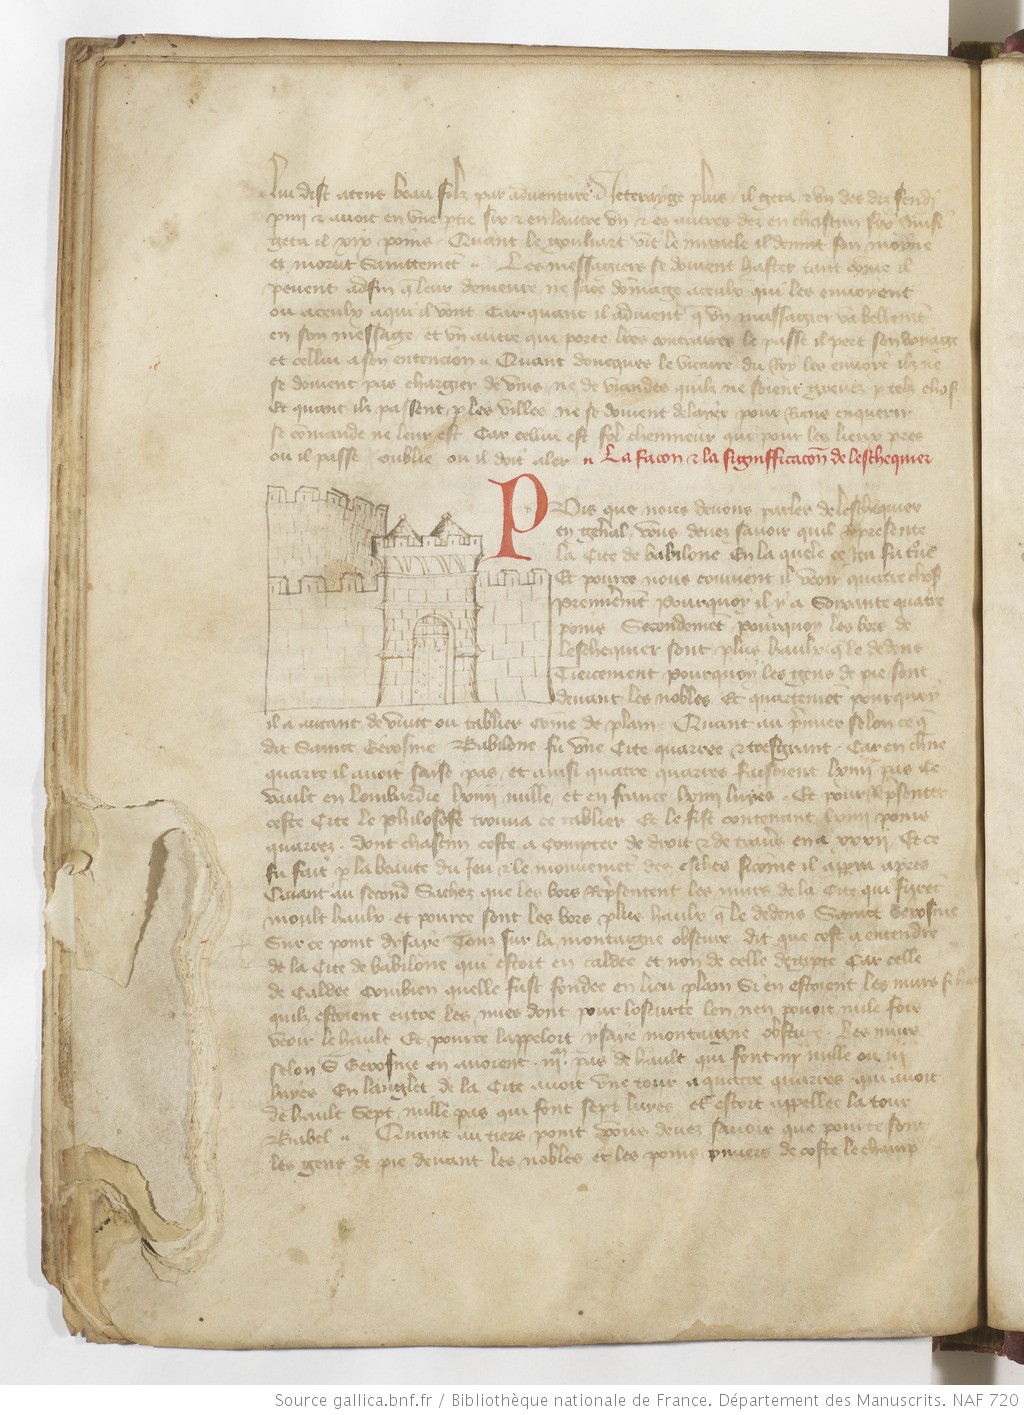 lui dist atens beau filz par adventure Je le gaigne plus il geta et un des dez fendi
geta il xix poins Quant le vit le miracle il devint son moyne
et morut Sainttement Les messagiers se doivent haster tant come il
pevent adfin q leur demeure ne face domage aceulx qui les envoient
ou aceulx aqui il vont Car quant il advient q un messagier va bellemt
en son message et un autre qui porte lres contraires le passe il pert son voiage
et cellui a son entencion Quant doncques le vicaire du Roy les envoie ilz ne
se doivent pas chargier de vins ne de viandes quilz ne soient grevez p telz chos
Et quant ilz passent p les villes ne se doivent delaier pour Riens enquerir
se comande ne leur est Car cellui est fol chemineur qui pour les lieux
ou il passe oublie ou il doit aler La facon et la signifficacon de leschequier
Puis que nous devons parler de leschequier
en genral vous devez savoir quil represente
la Cite de babilone En la quele ce Jeu fu
Et pource nous convient il veoir quatre chos
premieremt pourquoy il y a Soixante quatre
poins Secondemet pourquoy les bors de
leschequier sont plus haulx q le dedens
Tiercement pourquoy les gens de pie sont
devant les nobles Et quartemet pourquoy
il a autant de vuit ou tablier come de plain Quant au pmier selon ce q
dit Sainct Gerosme Babilone fu une Cite quarree et tresgrant Car en chune
quarre il avoit seise pas et ainsi quatre quarres faisoient lxiiii pas Ce
vault en lombardie lxiiii mille et en france lxiiii lieues Et pour Rpsenter
ceste Cite le philosofe trouva ce tablier Et le fist contenant lxiiii poins
quarrez dont chascun coste a compter de droit et de travers en a xxxii Et ce
fu fait p la beaute du Jeu et le mouvemet des esches sicome il apparra apres
Quant au second Sachez que les bors Rpsentent les murs de la Cite qui furet
moult haulx et pource sont les bors plus haulx q le dedens Sainct Gerosme
Sur ce point dysaye Tonz sur la montaigne obscure dit que cest a entendre
de la Cite de babilone qui estoit en caldee et non de celle degipte Car celle
de Caldee Combien quelle fust fondee en lieu plain Si en estoient les murs si haulx
quilz estoient entre les nues dont pour loscurte len nen povoit nule foiz
veoir le hault Et pource lappeloit ysaye montaigne obscure Les murs
selon S Gerosme en avoient pas de hault qui font iii mille ou iii
lieues En langlet de la Cite avoit une tour a quatre quarres qui avoit
de hault Sept mille pas qui font sept lieues et estoit appellee la tour
Babel Quant au tiers point vous devez savoir que pource sont
les gens de pie devant les nobles et les poins pmiers de coste le champ
Source gallica.bnf.fr / Bibliothèque nationale de France. Département des Manuscrits. NAF 720